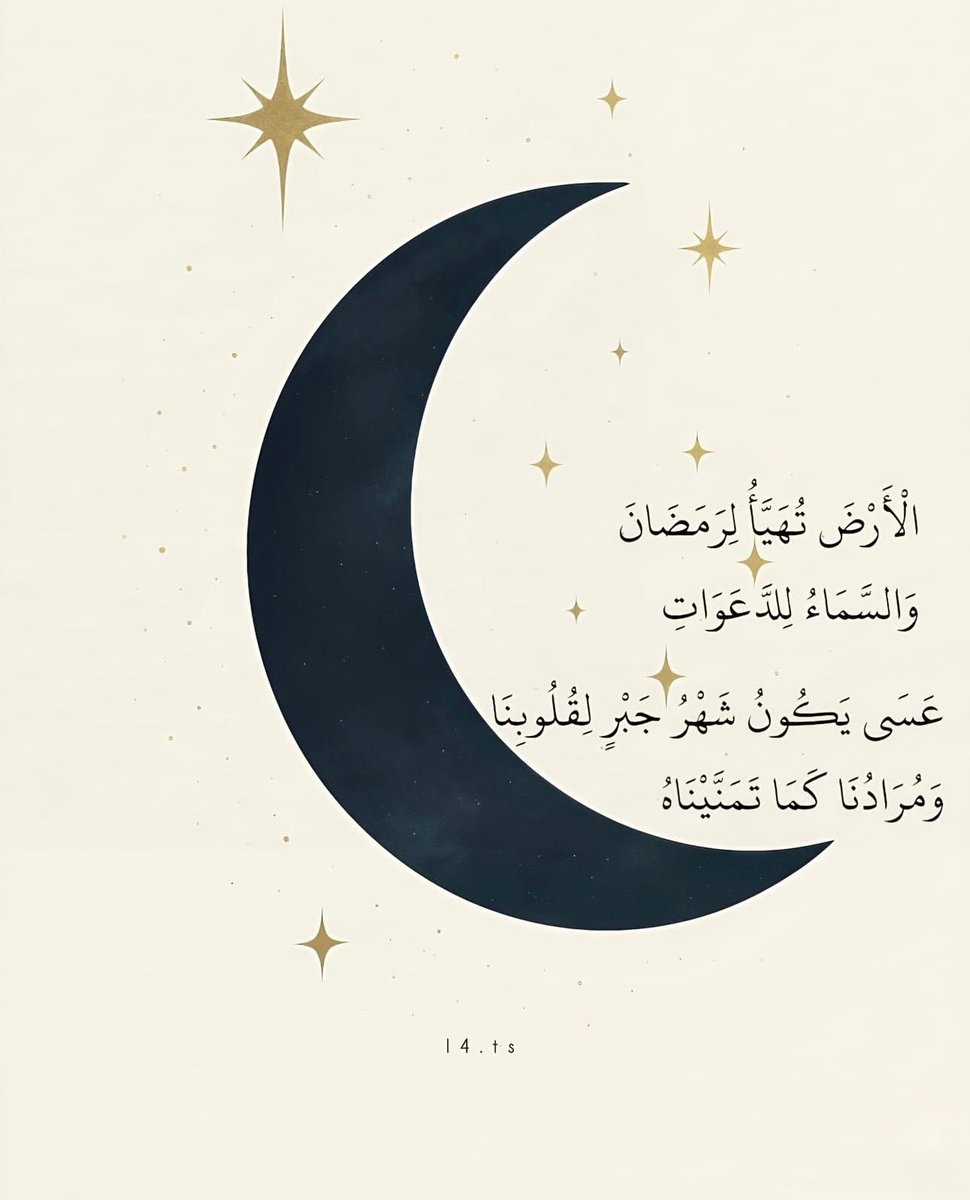 الْأَرْضَ تُهَيَّأُ لِرَمَضَانَ
وَالسَّمَاءُ لِلدَّعَوَاتِ
عَسَى يَكُونُ شَهْرُ جَبْرٍ لِقُلُوبِنَا
وَمُرَادُنَا كَمَا تَمَنَّيْنَاهُ
l4.ts